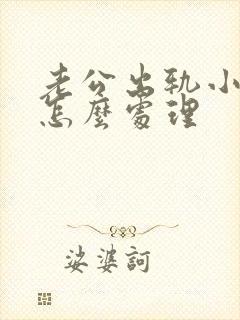 老公出轨小
怎麼處理
娑婆訶